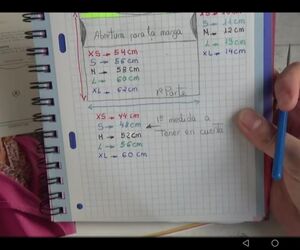 Abertura para la manga
XS → 54cm
S → 56cm
M → 58cm
L → 60cm
XL → 62cm
S → 11cm
M → 12cm
L → 13cm
XL → 14cm
1ª Parte
XS → 44cm
S → 48cm
M → 52cm
L → 56cm
XL → 60cm
1ª medida a
Tener en cuenta